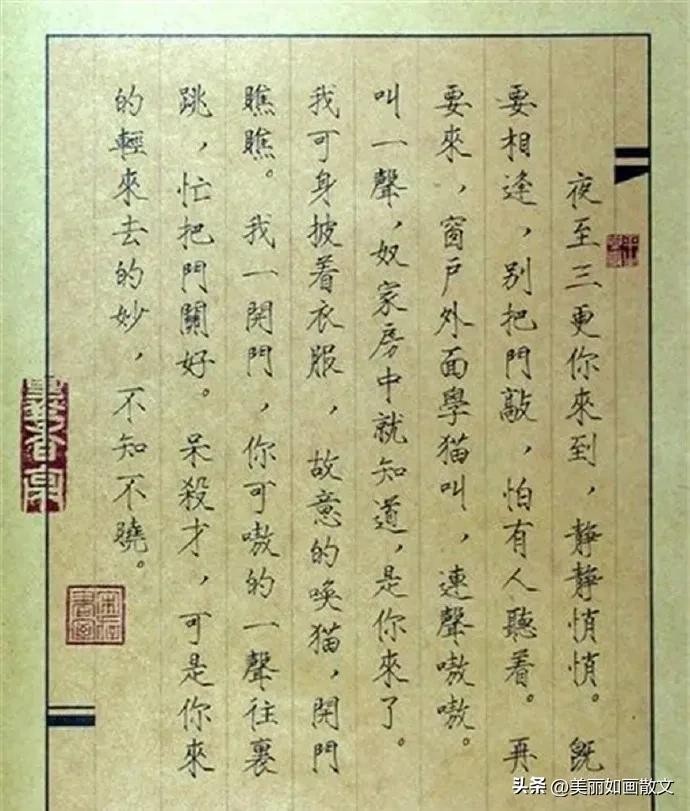 夜至三更你來到，靜靜悄悄。既
要相逢，别把門敲，怕有人聽着。再
要來，窗戶外面學猫叫，連聲嗷嗷。
叫一聲，奴家房中就知道，是你來了。
我可身披着衣服，故意的唤猫，開門
瞧瞧。我一開門，你可嗷的一聲往裏
跳，忙把門關好。呆殺才，可是你來
的輕來去的妙，不知不曉。
墨香阁
头条 @美丽如画散文